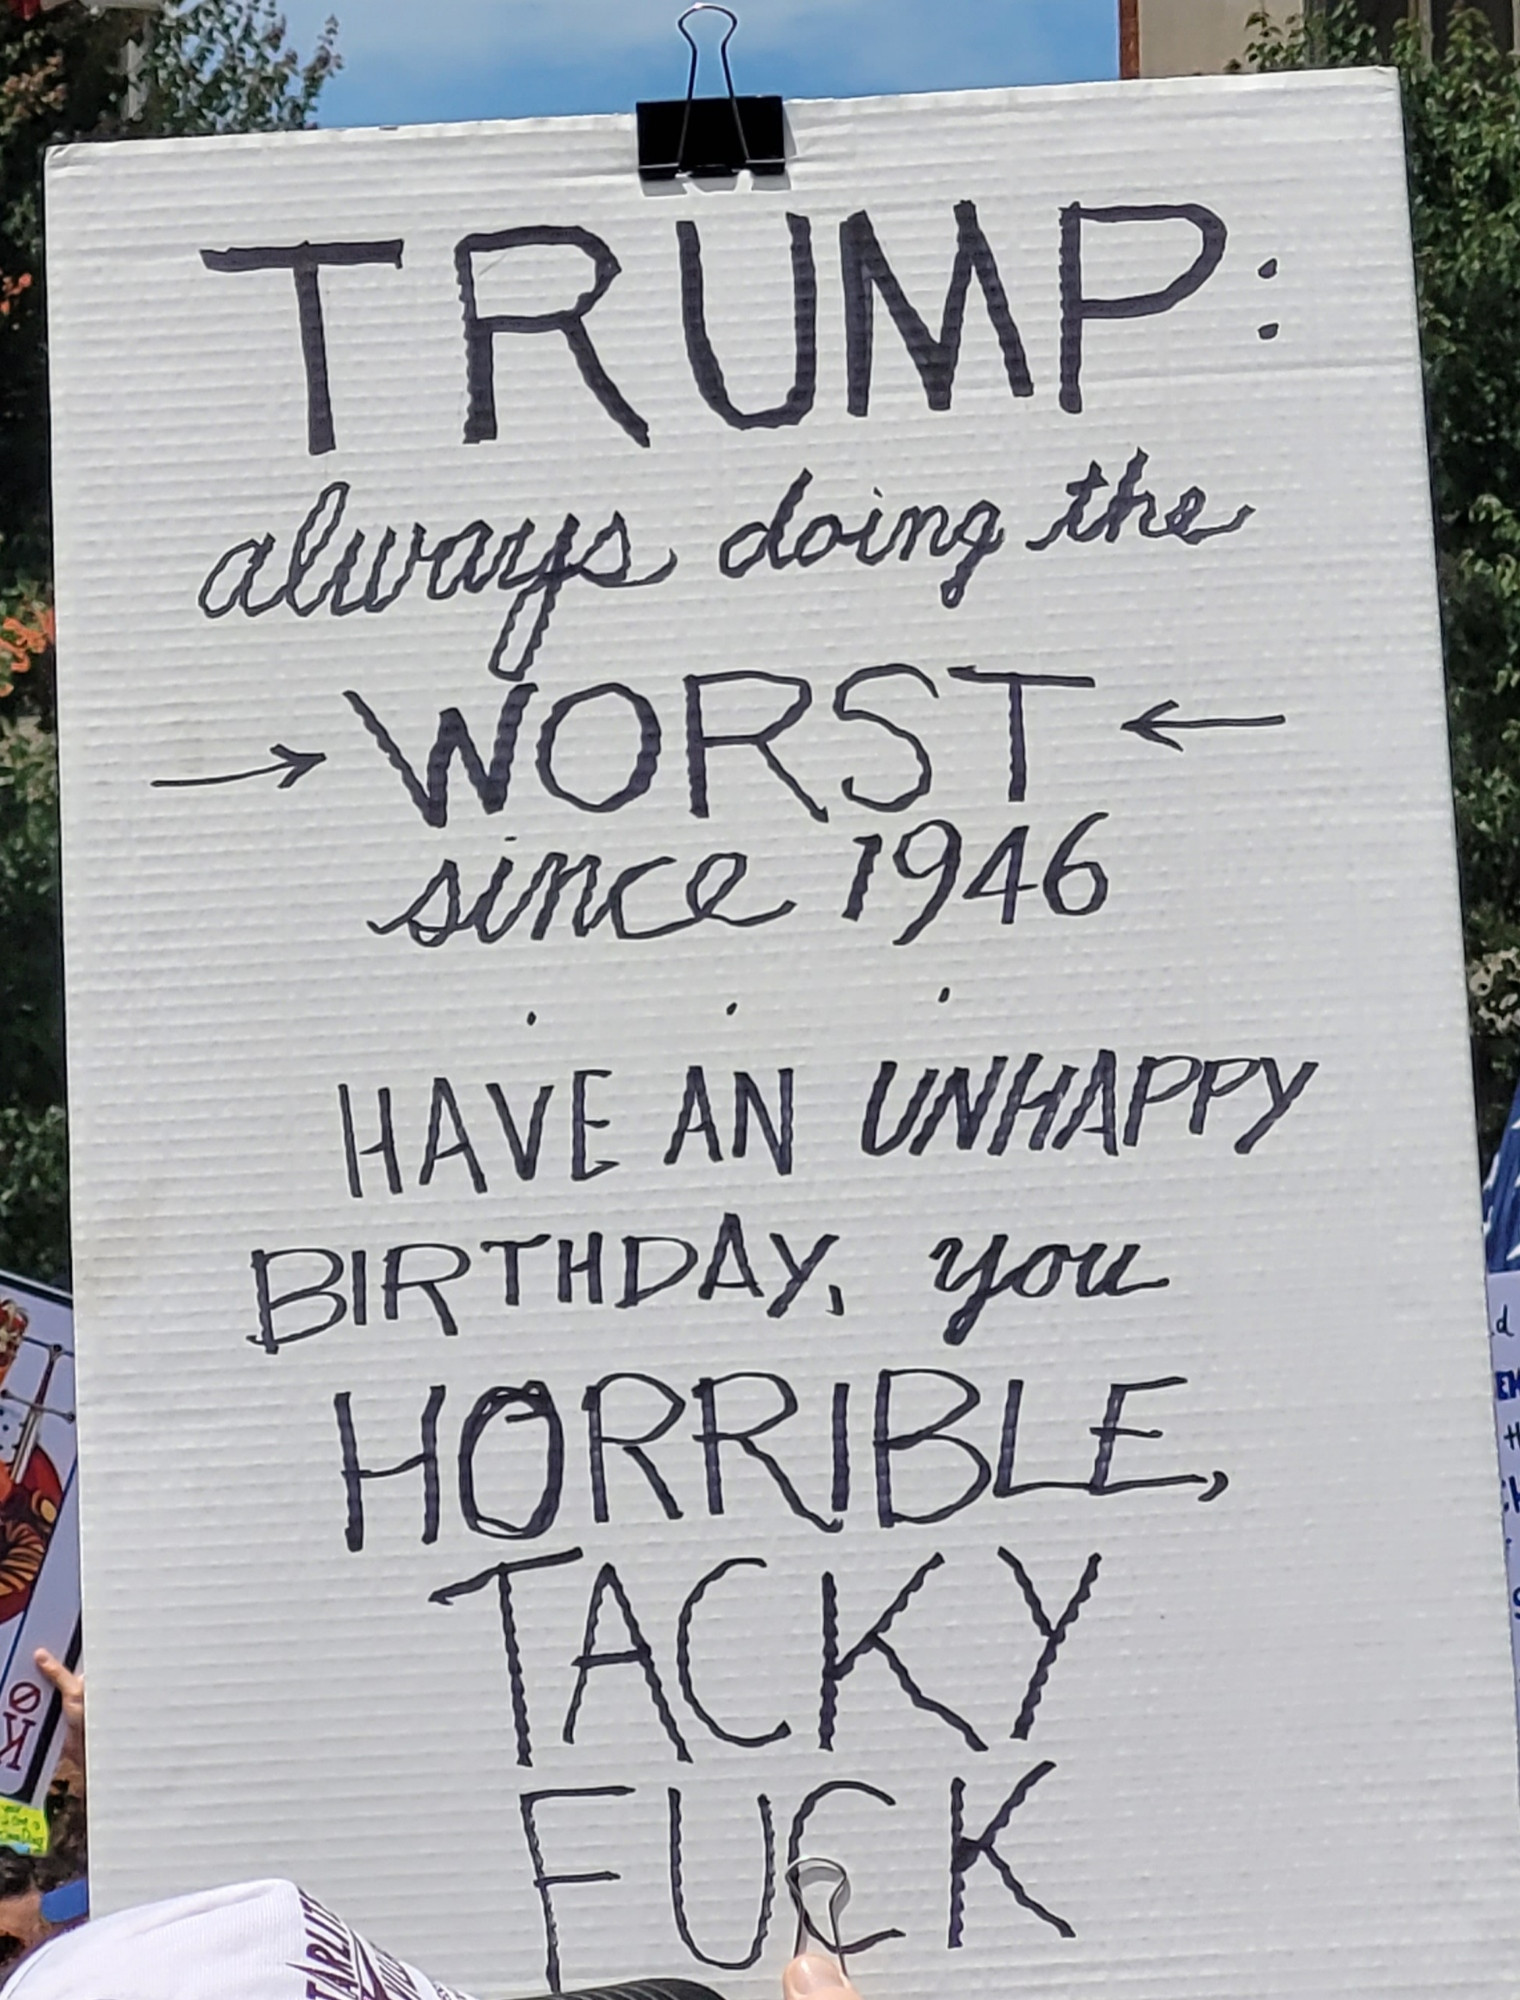 TRUMP:
always doing the
→ WORST ←
since 1946
. . .
HAVE AN UNHAPPY
BIRTHDAY, you
HORRIBLE,
TACKY
FUCK